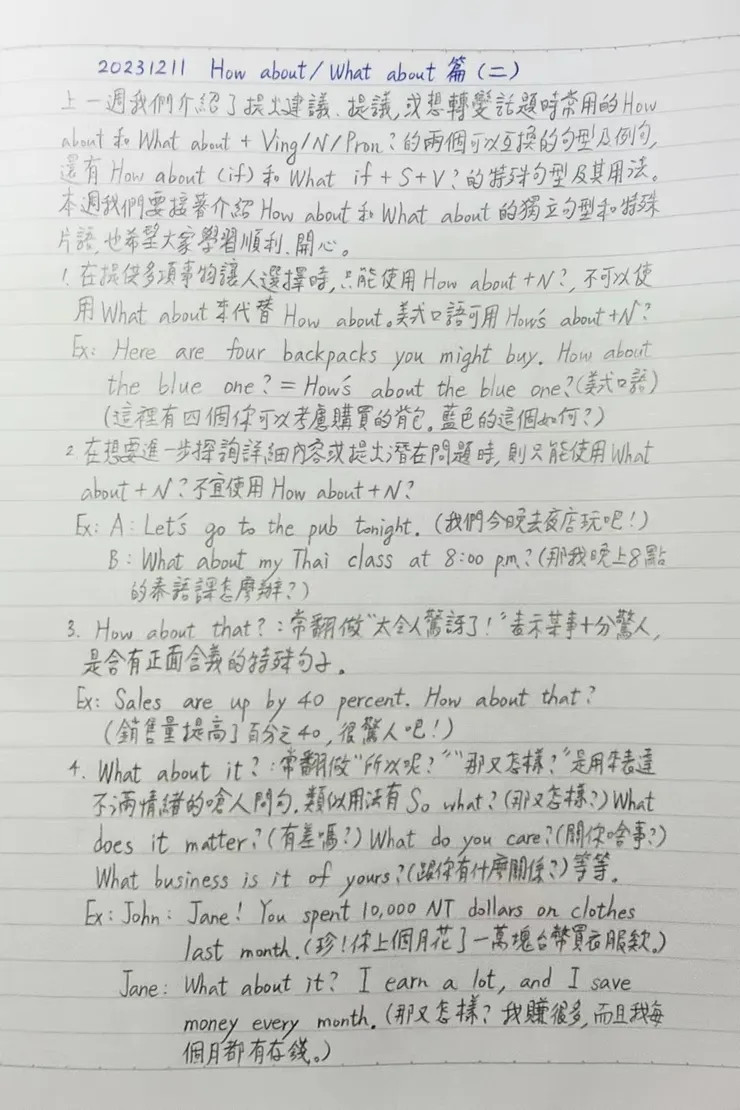 20231211 How about/What about 篇(二)
上一週我們介紹了提出建議、提議,或想轉變話題時常用的How
about和What about + Ving/N/Pron?的兩個可以互換的句型及例句,
還有How about (if)和What if + S + V?的特殊句型及其用法。
本週我們要接著介紹How about和What about的獨立句型和特殊
片語,也希望大家學習順利、開心。
1. 在提供多項事物讓人選擇時,只能使用How about +N?,不可以使
用What about來代替How about。美式口語可用How's about+N?
Ex: Here are four backpacks you might buy. How about
the blue one? = How's about the blue one?(美式口語)
(這裡有四個你可以考慮購買的背包。藍色的這個如何?)
2. 在想要進一步探詢詳細內容或提出潛在問題時,則只能使用What
about + N?不宜使用How about+N?
Ex: A: Let's go to the pub tonight. (我們今晚去夜店玩吧!)
B: What about my Thai class at 8:00 pm?(那我晚上8點
的泰語課怎麼辦?)
3. How about that?:常翻做"太令人驚訝了!"表示某事十分驚人,
是含有正面含義的特殊句子。
Ex: Sales are up by 40 percent. How about that?
(銷售量提高了百分之40,很驚人吧!)
4. What about it?:常翻做"所以呢?""那又怎樣?"是用來表達
不滿情緒的嗆人問句。類似用法有So what?(那又怎樣?)What
does it matter?(有差嗎?)What do you care?(關你啥事?)
What business is it of yours?(跟你有什麼關係?)等等。
Ex: John: Jane! You spent 10,000 NT dollars on clothes
last month.(珍!你上個月花了一萬塊台幣買衣服欸。)
Jane: What about it? I earn a lot, and I save
money every month.(那又怎樣?我賺很多,而且我每
個月都有存錢。)